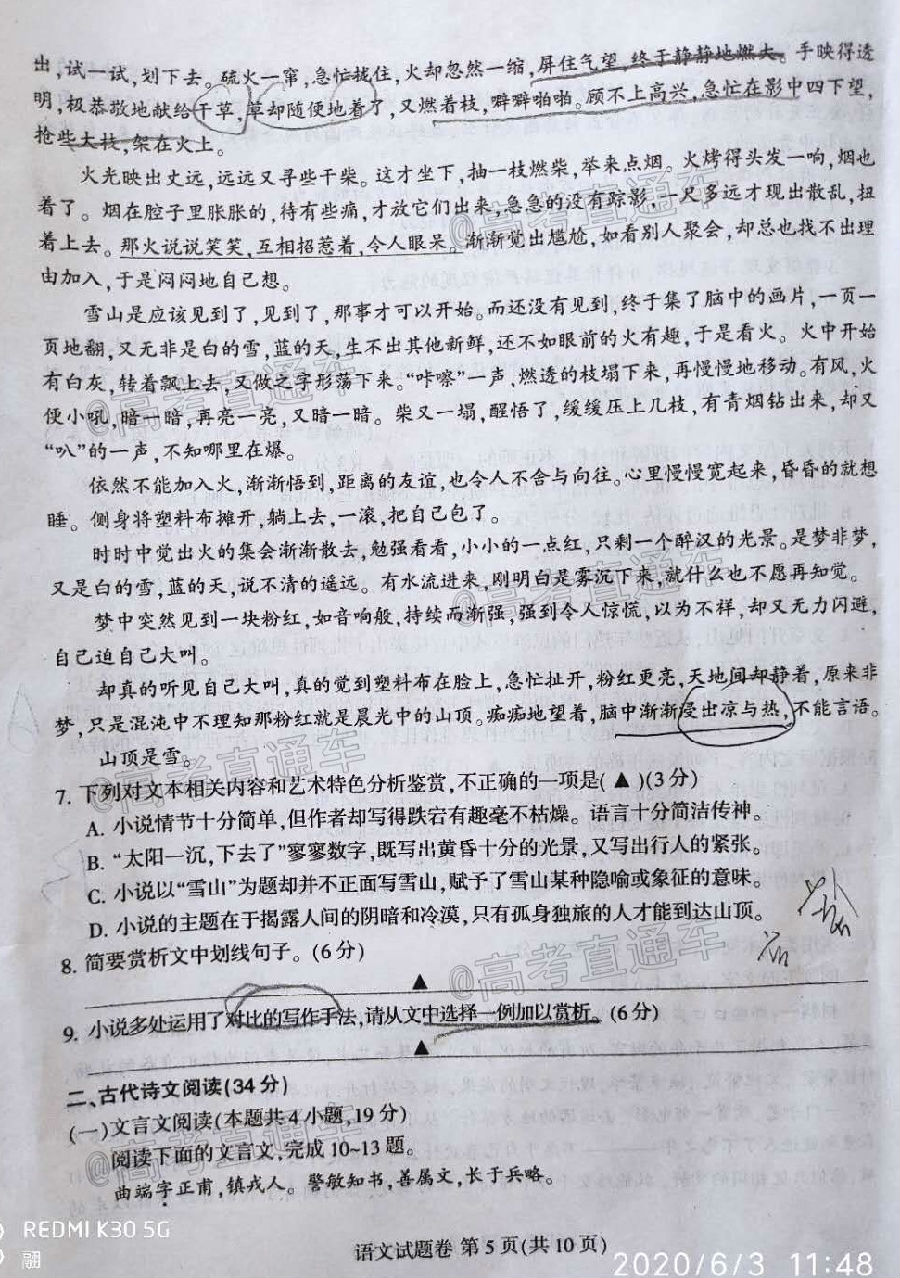 出,试一试,划下去。硫火一窜,急忙拢住,火却忽然一缩,屏住气望,终于静静地燃大。手映得透
明,极恭敬地献给干草,草却随便地着了,又燃着枝,噼噼啪啪。顾不上高兴,急忙在影中四下望,
抢些大枝,架在火上。
火光映出丈远,远远又寻些干柴。这才坐下,抽一枝燃柴,举来点烟。火烤得头发一响,烟也
着了。烟在腔子里胀胀的,待有些痛,才放它们出来,急急的没有踪影,一尺多远才现出散乱,扭
着上去。那火说说笑笑,互相招惹着,令人眼呆。渐渐觉出尴尬,如看别人聚会,却总也找不出理
由加入,于是闷闷地自己想。
雪山是应该见到了,见到了,那事才可以开始。而还没有见到,终于集了脑中的画片,一页一
页地翻,又无非是白的雪,蓝的天,生不出其他新鲜,还不如眼前的火有趣,于是看火。火中开始
有白灰,转着飘上去,又做之字形荡下来。“咔嚓”一声,燃透的枝塌下来,再慢慢地移动。有风,火
便小吼,暗一暗,再亮一亮,又暗一暗。柴又一塌,醒悟了,缓缓压上几枝,有青烟钻出来,却又
“叭”的一声,不知哪里在爆。
依然不能加入火,渐渐悟到,距离的友谊,也令人不舍与向往。心里慢慢宽起来,昏昏的就想
睡。侧身将塑料布摊开,躺上去,一滚,把自己包了。
时时中觉出火的集会渐渐散去,勉强看看,小小的一点红,只剩一个醉汉的光景。是梦非梦,
又是白的雪,蓝的天,说不清的遥远。有水流进来,刚明白是雾沉下来,就什么也不愿再知觉。
梦中突然见到一块粉红,如音响般,持续而渐强,强到令人惊慌,以为不祥,却又无力闪避,
自己迫自己大叫。
却真的听见自己大叫,真的觉到塑料布在脸上,急忙扯开,粉红更亮,天地间却静着,原来非
梦,只是混沌中不理知那粉红就是晨光中的山顶。痴痴地望着,脑中渐渐受出凉与热,不能言语。
山顶是雪。
7. 下列对文本相关内容和艺术特色分析鉴赏,不正确的一项是( ▲ )(3分)
A. 小说情节十分简单,但作者却写得跌宕有趣毫不枯燥。语言十分简洁传神。
B. “太阳一沉,下去了”寥寥数字,既写出黄昏十分的光景,又写出行人的紧张。
C. 小说以“雪山”为题却并不正面写雪山,赋予了雪山某种隐喻或象征的意味。
D. 小说的主题在于揭露人间的阴暗和冷漠,只有孤身独旅的人才能到达山顶。
8. 简要赏析文中划线句子。(6分)
▲
9. 小说多处运用了对比的写作手法,请从文中选择一例加以赏析。(6分)
▲
二、古代诗文阅读(34分)
(一)文言文阅读(本题共4小题,19分)
阅读下面的文言文,完成10~13题。
曲端字正甫,镇戎人。警敏知书,善属文,长于兵略。
语文试题卷 第5页(共10页)
@高考直通车
@高考直通车
@高考直通车
@高考直通车
@高考直通车
@高考直通车
@高考直通车
REDMI K30 5G
翮
2020/6/3 11:48